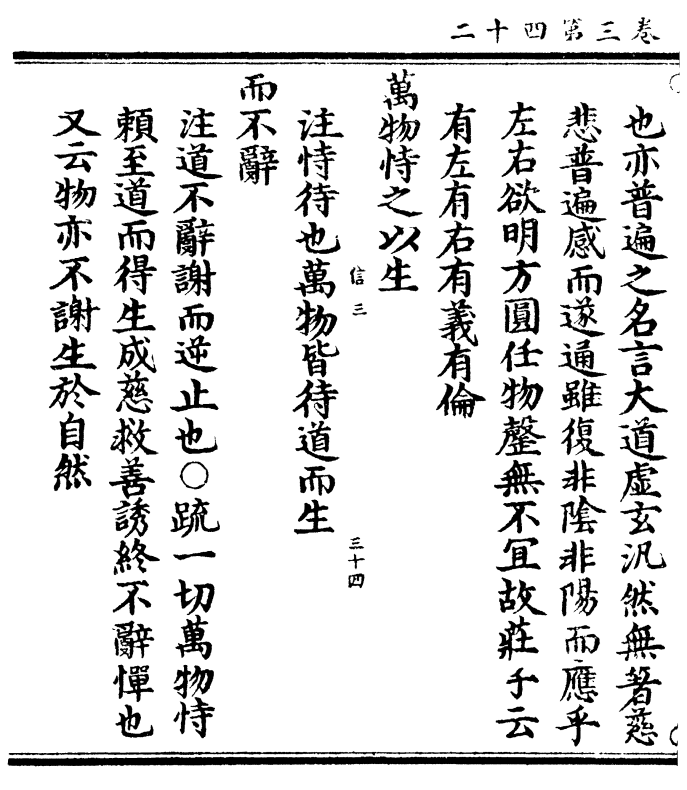 二十四第三卷
也亦普遍之名言大道虛玄汎然無著慈
悲普遍感而遂通雖復非陰非陽而應乎
左右欲明方圓任物罄無不宜故莊子云
有左有右有義有倫
萬物恃之以生
信三
三十四
注恃待也萬物皆待道而生
而不辭
注道不辭謝而逆止也〇疏一切萬物恃
賴至道而得生成慈救善誘終不辭憚也
又云物亦不謝生於自然